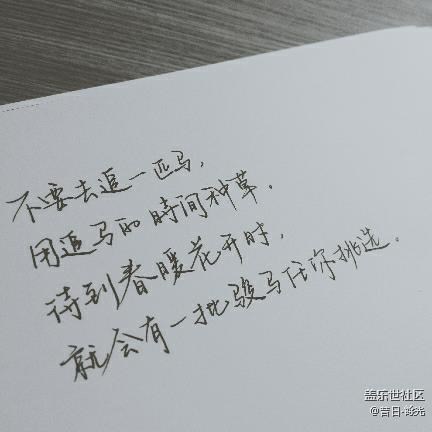 不要去追一匹马，
用追马的时间种草。
待到春暖花开时，
就会有一批骏马任你挑选。
盖乐世社区
@昔日·烁光